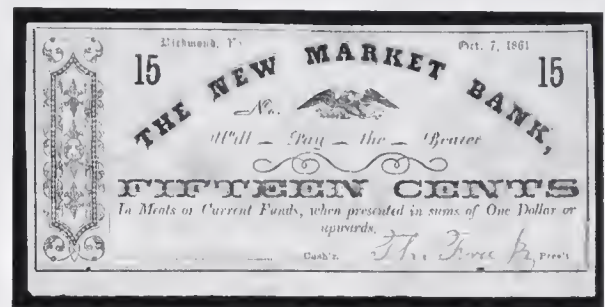 Richmond, Va. Oct. 7, 1861
15 THE NEW MARKET BANK, 15
No.
Will Pay the Bearer
FIFTEEN CENTS
In Meats or Current Funds, when presented in sums of One Dollar or
upwards.
Cash'r. Pres't